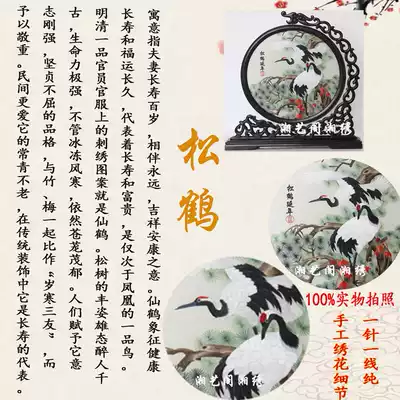 松鹤
寓意指夫妻长寿百岁,相伴永远,吉祥安康之意。仙鹤象征健康
长寿和福运长久,代表着长寿和富贵,是仅次于凤凰的一品鸟。
明清一品官员官服上的刺绣图案就是仙鹤。松树的丰姿雄态醉人千
古,生命力极强,不管冰冻风寒,依然苍茏茂郁。人们赋予它意
志刚强,坚贞不屈的品格,与竹、梅一起比作“岁寒三友”,而
予以敬重。民间更爱它的常青不老,在传统装饰中它是长寿的代表。
湘艺阁湘绣
松鹤延年
湘艺阁湘绣
湘艺阁湘绣
100%实物拍照
一针一线纯
手工绣花细节